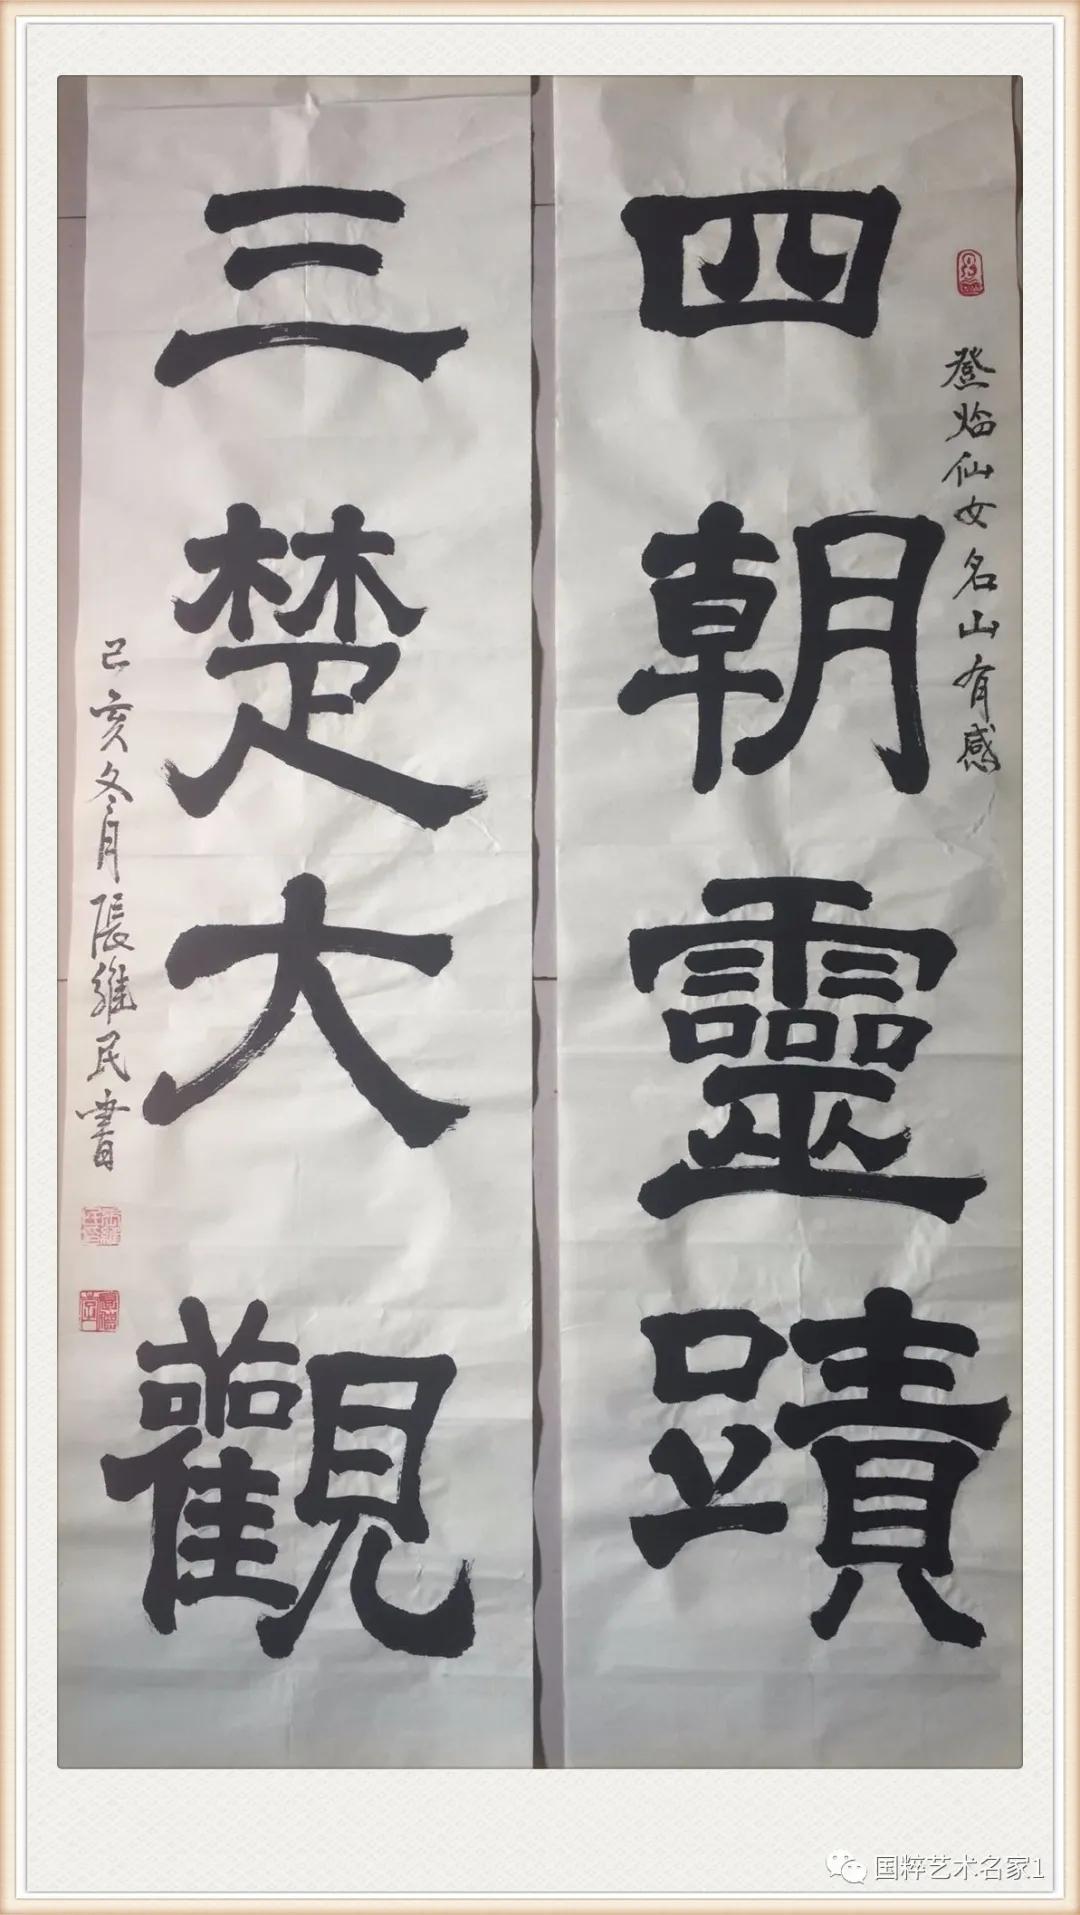 四朝靈蹟
登临仙女名山有感
三楚大觀
己亥冬月張維民書
国粹艺术名家1